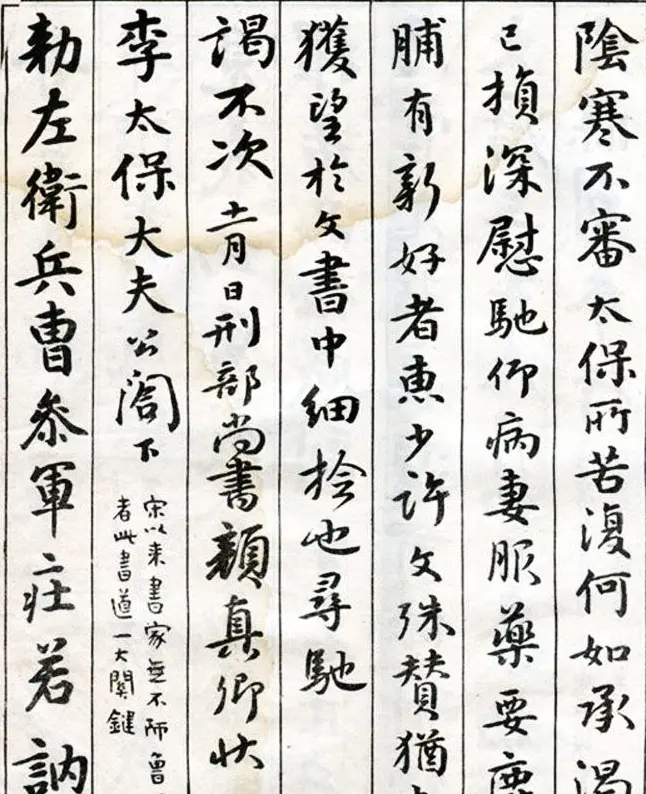 陰寒不審太保所苦復何如承渴
已損深慰馳仰病妻服藥要鹿
脯有新好者惠少許文殊贊猶
獲望於文書中細捡也尋馳
謁不次十一月日刑部尚書顏真卿狀
李太保大夫公閤下
宋以来書家無不師魯
者此書道一大關鍵
勑左衛兵曹叅軍莊若訥